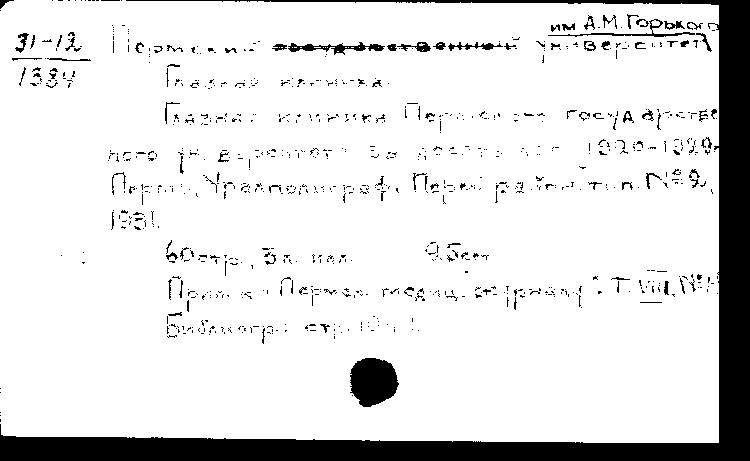 им А.М. Горького
31-12
1384
Пермский государственный университет
Глазная клиника.
Глазная клиника Пермского государстве
ного университета за десять лет 1920-1929
Пермь, Уралполиграф, Перв. район. тип. № 2,
1931.
60 стр., 3 л. илл.
Прил. к "Пермск. медиц. журналу". Т. VIII, №
Библиогр.: стр.